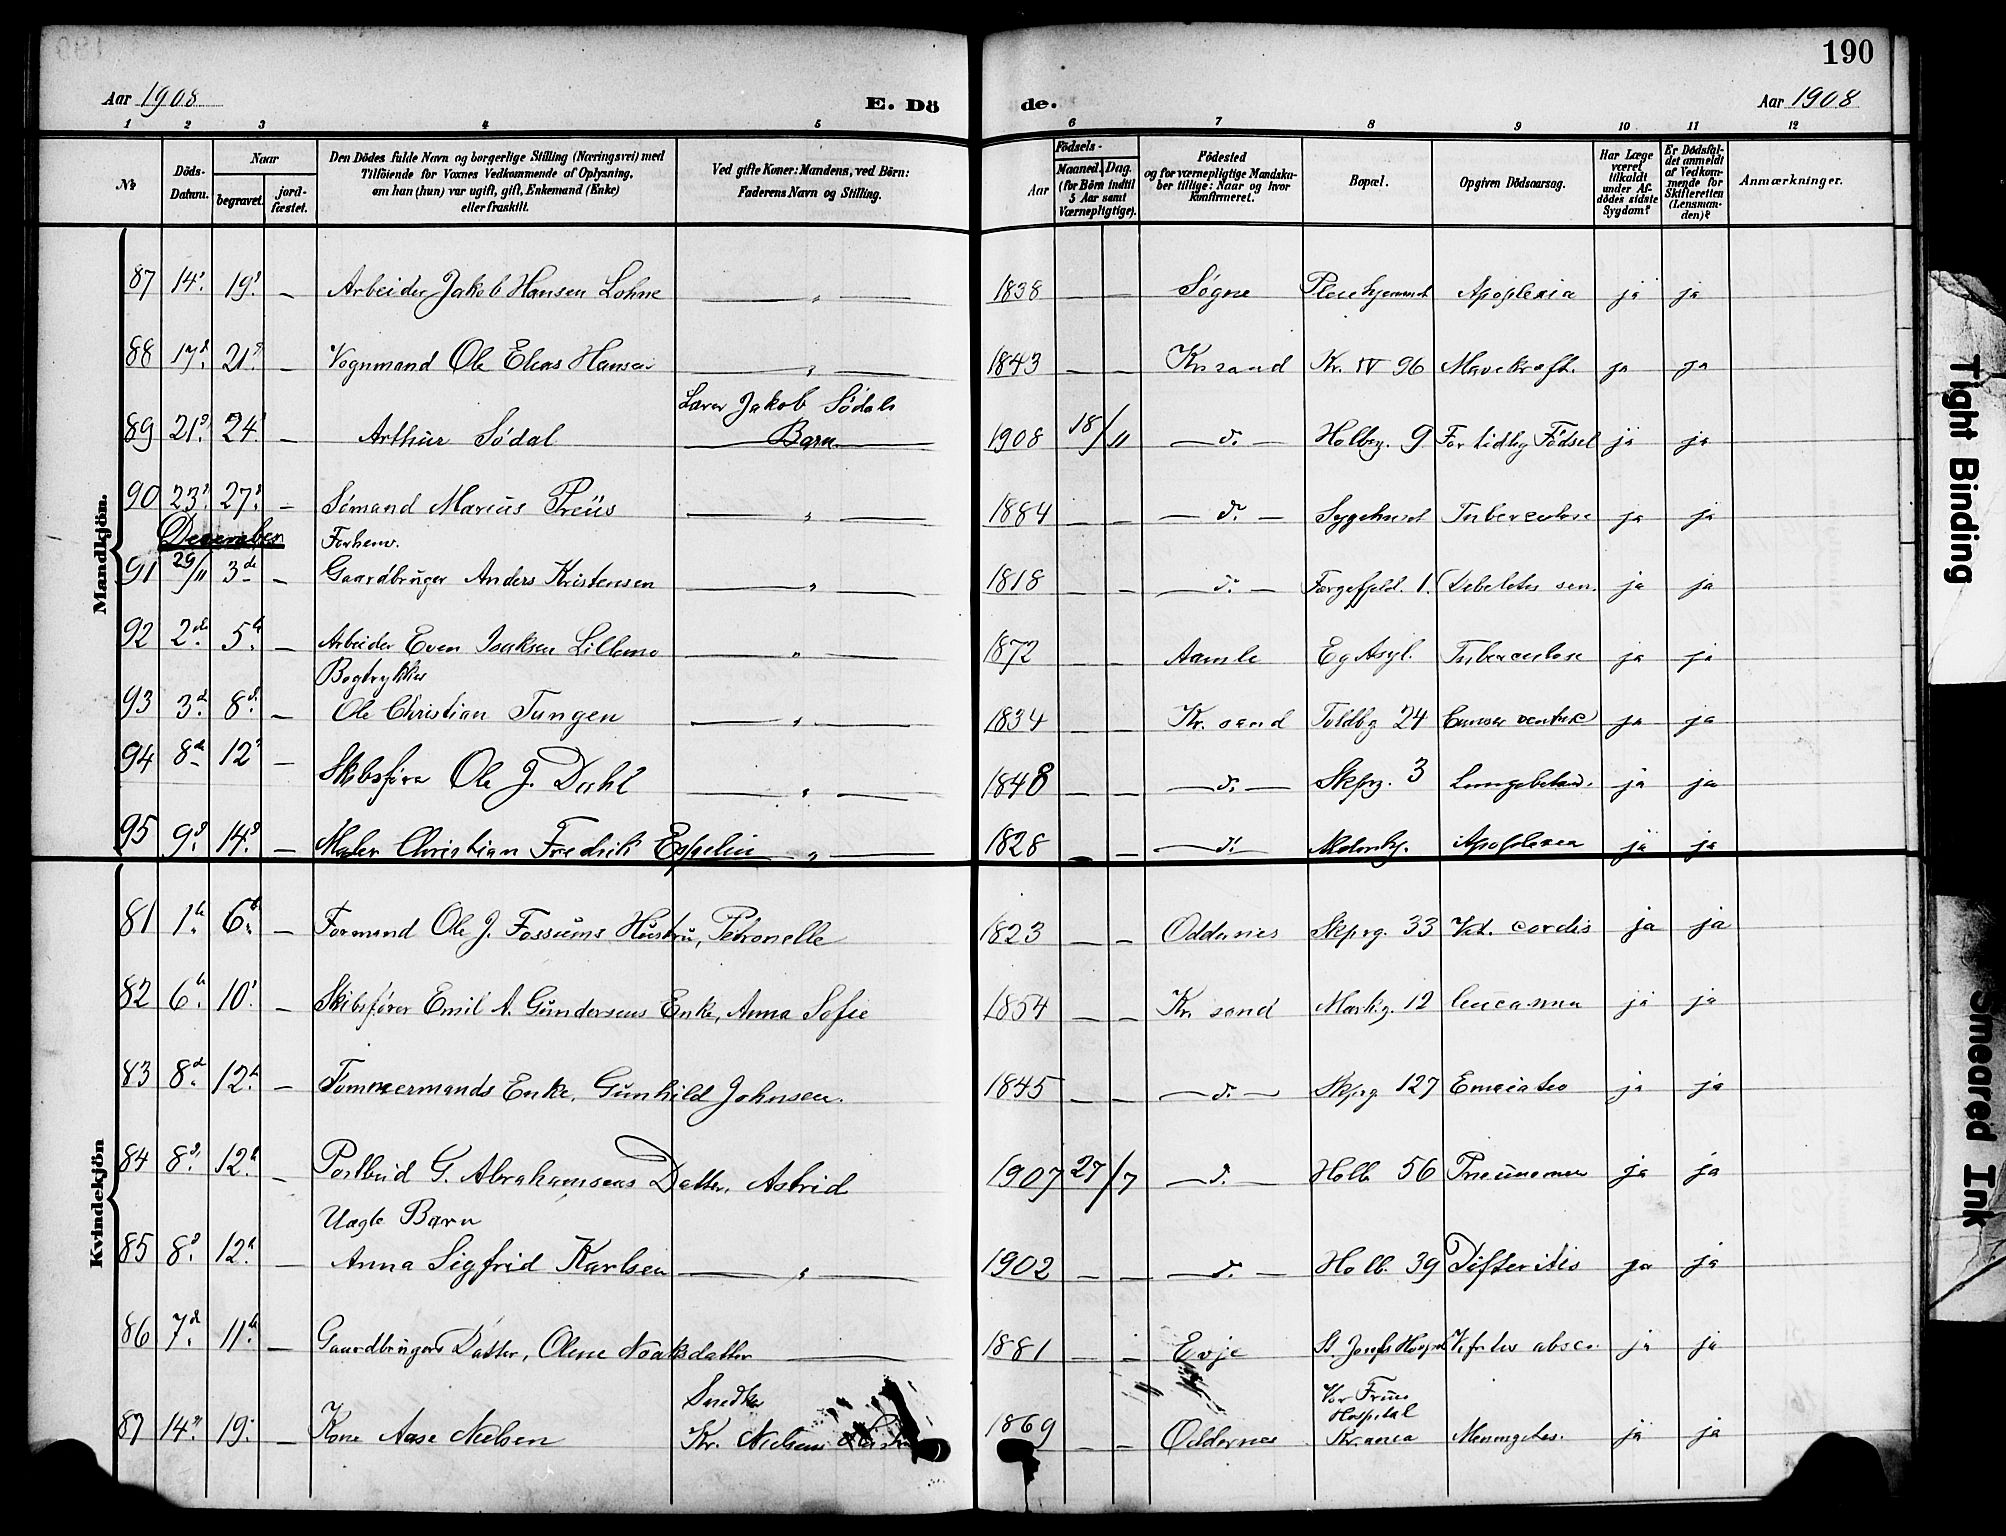 190
Aar 1908
E. Dö
de.
Aar 1908
1 2 3 4 5 6 7 8 9 10 11 12
№
Döds-
Datum.
Naar
begravet.
jord-
fæstet.
Den Dödes fulde Navn og borgerlige Stilling (Næringsvei) med
Tilföiende for Voxnes Vedkommende af Oplysning,
om han (hun) var ugift, gift, Enkemand (Enke)
eller fraskilt.
Ved gifte Koner: Mandens, ved Börn:
Faderens Navn og Stilling.
Födsels-
Aar
Maaned.
Dag.
(for Börn indtil
5 Aar samt
Værnepligtige).
Födested
og for værnepligtige Mandska-
ber tillige: Naar og hvor
konfirmeret.
Bopæl.
Opgiven Dödsaarsag.
Har Læge
været
tilkaldt
under Af-
dödes sidste
Sygdom?
Er Dödsfal-
det anmeldt
af Vedkom-
mende for
Skifteretten
(Lensman-
den)?
Anmærkninger.
Mandkjön.
87 14. 19. — Arbeider Jakob Hansen Lohne — „ — 1838 — — Søgne Apoplexia ja ja
88 17. 21. Vognmand Ole Elias Hansen — „ — 1843 — — Kr. sand Kr. IV 96 Mavekræft. ja ja
Lærer Jakob Södals
89 21. 24. — Arthur Södal Barn 1908 18/11 — d. — Holbg. 9 For tidlig Födsel ja ja
90 23. 27. — Sömand Marius Preüs — „ — 1884 — — — d. — Sygehuset Tuberculose ja ja
December
Forhenv.
91 29/11 3de — Gaardbruger Anders Kristensen — „ — 1818 — — — d. — 1. Debilitas sen. ja ja
92 2de 5te — Arbeider Even Isaksen Lillemo — „ — 1872 — — Aamli Eg Asyl. Tuberculose ja ja
Bogtrykker
93 3d. 8d. — Ole Christian Tungen — „ — 1834 Kr. sand Toldbg 24 Cancer ventric ja ja
94 8de 12 — Skibsfører Ole J. Dahl — „ — 1848 — — — d. — Skprg. 3 Lungebetænd. ja ja
95 9. 14. — Maler Christian Fredrik Eppelin — „ — 1828 — — — d. — Apoplexia ja ja
Kvindekjön
81 1te 6te — Formand Ole J. Fossums Hustru, Petronelle 1823 — — Oddernes Skprg. 33 Vit. cordis ja ja
82 6te 10. — Skibsfører Emil A. Gundersens Enke, Anna Sofie 1854 — — Kr. sand Markg. 12 ja ja
83 8de 12te — Tømmermands Enke, Gunhild Johnsen. 1845 — — — d. — Skprg 127 Emaciatio ja ja
84 8. 12te — Postbud G. Abrahamsens Datter, Astrid 1907 27/7 — d. — Holb 56 Pneumonia ja ja
Uægte Barn
85 8. 12te — Anna Sigfrid Karlsen — „ — 1902 — — — d. — Holb. 39 Difteritis ja ja
86 7d. 11te — Gaardbrugers Datter, Olene Noaksdatter — 1881 — — Evje St. Josefs Hospital absce. ja ja
Snedker
Vor Frue
Hospital
87 14. 19. — Kone Aase Nielsen Kr. Nielsens 1869 — — Oddernes Kr.ania Meningitis. ja ja
Tight Binding
Smeared Ink